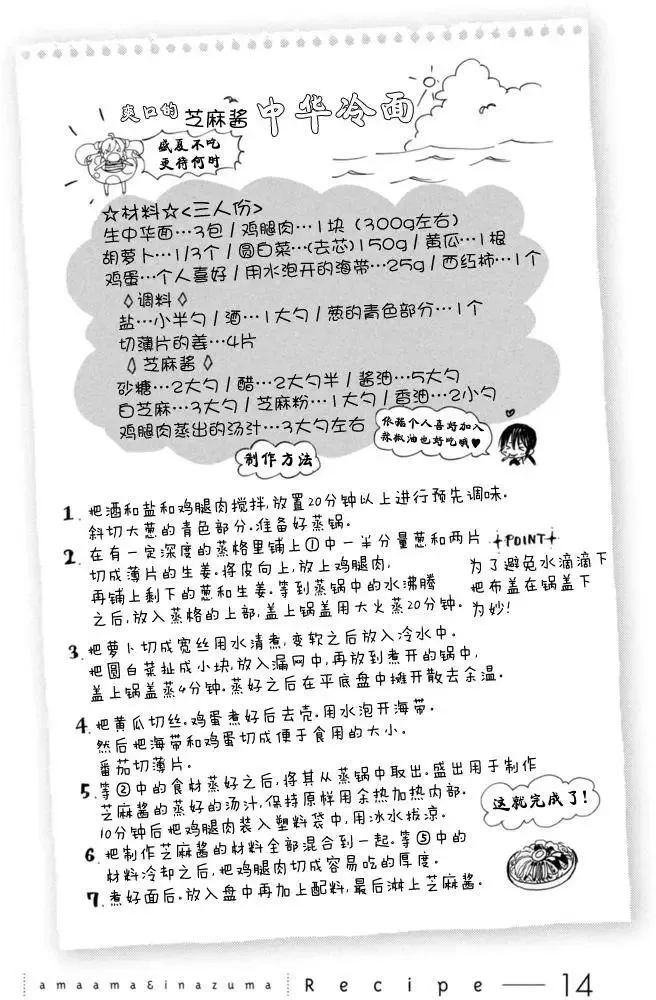 爽口的 芝麻酱 中华冷面
盛夏不吃
更待何时
☆材料☆<三人份>
生中华面…3包/鸡腿肉…1块（300g左右）
胡萝卜…1/3个/圆白菜…(去芯)150g/黄瓜…1根
鸡蛋…个人喜好/用水泡开的海带…25g/西红柿…1个
◇调料◇
盐…小半勺/酒…1大勺/葱的青色部分…1个
切薄片的姜…4片
◇芝麻酱◇
砂糖…2大勺/醋…2大勺半/酱油…5大勺
白芝麻…3大勺/芝麻粉…1大勺/香油…2小勺
鸡腿肉蒸出的汤汁…3大勺左右
依据个人喜好加入
辣椒油也好吃哦♥
制作方法
1. 把酒和盐和鸡腿肉搅拌,放置20分钟以上进行预先调味.
斜切大葱的青色部分.准备好蒸锅.
2. 在有一定深度的蒸格里铺上①中一半分量葱和两片
切成薄片的生姜.将皮向上,放上鸡腿肉,
再铺上剩下的葱和生姜.等到蒸锅中的水沸腾
之后,放入蒸格的上部,盖上锅盖用大火蒸20分钟.
POINT
为了避免水滴滴下
把布盖在锅盖下
为妙!
3. 把萝卜切成宽丝用水清煮,变软之后放入冷水中.
把圆白菜扯成小块,放入漏网中,再放到煮开的锅中,
盖上锅盖蒸4分钟.蒸好之后在平底盘中摊开散去余温.
4. 把黄瓜切丝.鸡蛋煮好后去壳.用水泡开海带.
然后把海带和鸡蛋切成便于食用的大小.
番茄切薄片.
5. 等②中的食材蒸好之后,将其从蒸锅中取出.盛出用于制作
芝麻酱的蒸好的汤汁,保持原样用余热加热内部.
10分钟后把鸡腿肉装入塑料袋中,用冰水拔凉.
6. 把制作芝麻酱的材料全部混合到一起.等⑤中的
材料冷却之后,把鸡腿肉切成容易吃的厚度.
7. 煮好面后.放入盘中再加上配料,最后淋上芝麻酱.
这就完成了!
amaama&inazuma Recipe — 14